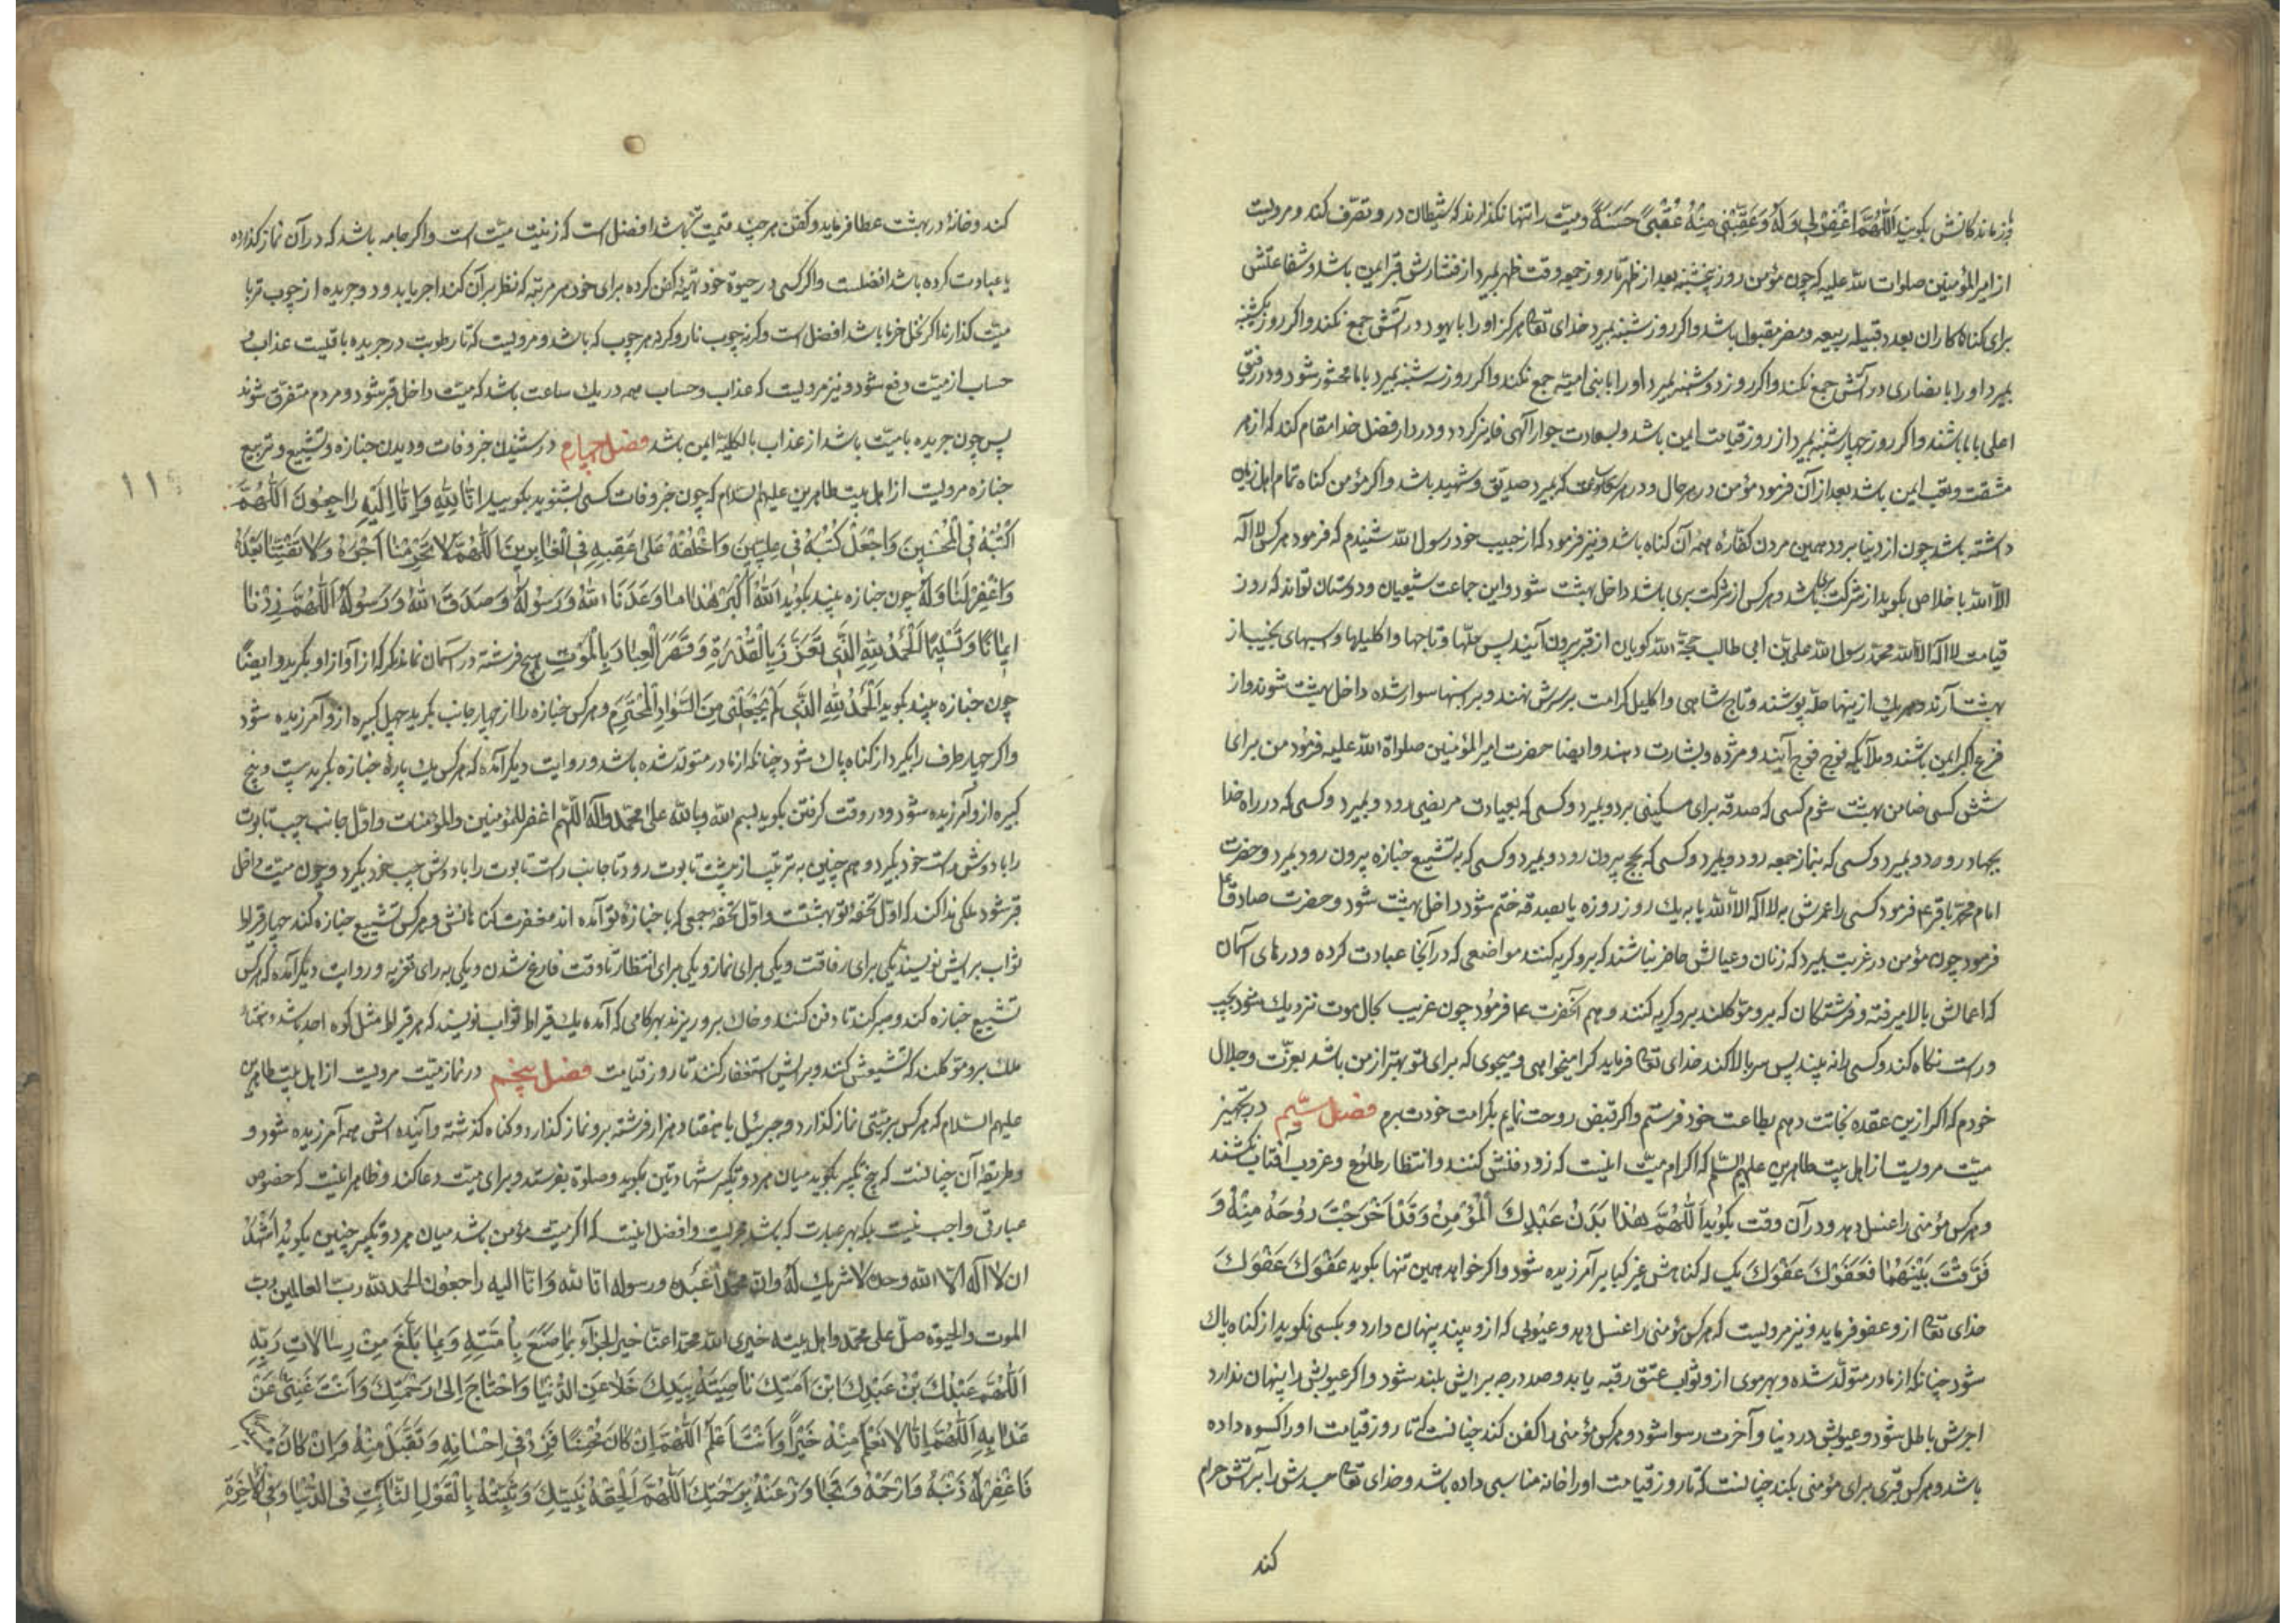 و بازماندکانش بکویند اَللّٰهُمَّ اغْفِرْلِی وَلَهُ وَعَقِّبْنِی مِنْهُ عُقْبیً حَسَنَةً ومیّت را تنها نکذارند که شیطان در و تصرّف کند و مرویست
از امیرالمؤمنین صلوات الله علیه که چون مؤمن روز پنجشنبه بعد از ظهر تا روز جمعه وقت ظهر بمیرد از فشارش قبر ایمن باشد و شفاعتش
برای کناهکاران بعدد قبیله ربیعه و مضر مقبول باشد و اکر روز شنبه بمیرد خدای تعالی هرکز او را با یهود در آتش جمع نکند و اکر روز یکشنبه
بمیرد او را با نصاری در آتش جمع نکند و اکر روز دوشنبه بمیرد او را با بنی امیّه جمع نکند و اکر روز سه شنبه بمیرد با ما محشور شود و در رفیق
اعلی با ما باشند و اکر روز چهارشنبه بمیرد از روز قیامت ایمن باشد و بسعادت جوار الهی فایز کردد و در دار فضل خدا مقام کند که از هر
مشقت و تعب ایمن باشد بعد از آن فرمود مؤمن در هر حال و در هر ساعت که بمیرد صدّیق و شهید باشد و اکر مؤمن کناه تمام اهل زمین
داشته باشد چون از دنیا برود همین مردن کفّارهٔ همهٔ آن کناه باشد و نیز فرمود که از حبیب خود رسول الله شنیدم که فرمود هر کس لا اله
الّا الله باخلاص بکوید از شرکت بری باشد و هر کس از شرکت بری باشد داخل بهشت شود و این جماعت شیعیان و دوستان تواند که روز
قیامت لا اله الّا الله محمد رسول الله علی بن ابی طالب حجّة الله کویان از قبر بیرون آیند پس حلّها و تاجها و اکلیلها و اسبهای نجیب از
بهشت آرند و هر یک ازینها حلّه پوشند و تاج شاهی و اکلیل کرامت بر سرش نهند و بر اسبها سوار شده داخل بهشت شوند و از
فزع اکبر ایمن باشند و ملآئکه فوج فوج آیند و مژده و بشارت دهند و ایضا حضرت امیرالمؤمنین صلواة الله علیه فرمود من برای
شش کسی ضامن بهشت شوم کسی که صدقه برای مسکینی برد و بمیرد و کسی که بعیادت مریضی رود و بمیرد و کسی که در راه خدا
بجهاد رود و بمیرد و کسی که بنماز جمعه رود و بمیرد و کسی که بحج بیرون رود و بمیرد و کسی که به تشییع جنازه بیرون رود بمیرد و حضرت
امام محمّد باقر ع فرمود کسی را عمرش به لا اله الّا الله یا به یک روز روزه یا بصدقه ختم شود داخل بهشت شود و حضرت صادق ع
فرمود چون مؤمن در غربت بمیرد که زنان و عیالش حاضر نباشند که برو کریه کنند مواضعی که در آنجا عبادت کرده و درهای آسمان
که اعمالش بالا میرفته و فرشتکان که برو موّکلند برو کریه کنند و هم آنحضرت ع فرمود چون غریب بحال موت نزدیک شود بچپ
و راست نکاه کند و کسی را نه بیند پس سر بالا کند خدای تعالی فرماید کرا میخواهی و میجوی که برای تو بهتر از من باشد بعزّت و جلال
خودم که اکر ازین عقده نجاتت دهم بطاعت خود فرستم و اکر قبض روحت نمایم بکرامت خودت برم فصل سیّم در تجهیز
میّت مرویست از اهل بیت طاهرین علیهم السّلم که اکرام میّت اینست که زود دفنش کنند و انتظار طلوع و غروب آفتاب نکشند
و هر کس مؤمنی را غسل دهد و در آن وقت بکوید اَللّٰهُمَّ هٰذٰا بَدَنُ عَبْدِكَ الْمُؤْمِنِ وَقَدْ اَخْرَجْتَ رُوحَهُ مِنْهُ وَ
فَرَّقْتَ بَیْنَهُمٰا فَعَفْوَكَ عَفْوَكَ یک ساله کناهش غیر کبایر آمرزیده شود و اکر خواهد همین تنها بکوید عَفْوَكَ عَفْوَكَ
خدای تعالی از و عفو فرماید و نیز مرویست که هر کس مؤمنی را غسل دهد و عیوبی که از و بیند پنهان دارد و بکسی نکوید از کناه پاک
شود چنانکه از مادر متولّد شده و بهر موی ازو ثواب عتق رقبه یابد و صد درجه برایش بلند شود و اکر عیوبش را پنهان ندارد
اجرش باطل شود و عیوبش در دنیا و آخرت رسوا شود و هر کس مؤمنی را کفن کند چنانست که تا روز قیامت او را کسوه داده
باشد و هر کس قبری برای مؤمنی بکند چنانست که تا روز قیامت او را خانه مناسبی داده باشد و خدای تعالی جسدش را بر آتش حرام
کند
کند و خانهٔ در بهشت عطا فرماید و کفن هر چند قیمت تر باشد افضل است که زینت میّت است و اکر جامه باشد که در آن نماز کذارده
یا عبادت کرده باشد افضلست و اکر کسی در حیوة خود تهیّهٔ کفن کرده برای خود هر مرتبه که نظر بر آن کند اجر یابد و دو جریده از چوب تر با
میّت کذارند اکر نخل خرما باشد افضل است و کر نه چوب نار و کرنه هر چوب که باشد و مرویست که تا رطوبت در جریده باقیست عذاب و
حساب از میّت دفع شود و نیز مرویست که عذاب و حساب همه در یک ساعت باشد که میّت داخل قبر شود و مردم متفرّق شوند
پس چون جریده با میّت باشد از عذاب بالکلیّه ایمن باشد فصل چهارم در شنیدن خبر وفات و دیدن جنازه و تشییع و تربیع
جنازه مرویست از اهل بیت طاهرین علیهم السّلام که چون خبر وفات کسی بشنوید بکویید اِنّٰا لِلّٰهِ وَاِنّٰا اِلَیْهِ رٰاجِعُونَ اَللّٰهُمَّ
۱۱
اکْتُبْهُ فِی الْمُحْسِنِینَ وَاجْعَلْ کُتُبَهُ فِی عِلِّیِّینَ وَاخْلُفْهُ عَلیٰ عَقِبِهِ فِی الْغٰابِرِینَ اَللّٰهُمَّ لٰا تَحْرِمْنٰا اَجْرَهُ وَلٰا تَفْتِنّٰا بَعْدَهُ
وَاغْفِرْلَنٰا وَلَهُ چون جنازه بیند بکوید اَللّٰهُ اَکْبَرُ هٰذٰا مٰا وَعَدَنَا اللّٰهُ وَرَسُولُهُ وَصَدَقَ اللّٰهُ وَرَسُولُهُ اَللّٰهُمَّ زِدْنٰا
اِیمٰانًا وَتَسْلِیمًا اَلْحَمْدُ لِلّٰهِ الَّذِی تَعَزَّزَ بِالْقُدْرَةِ وَقَهَرَ الْعِبٰادَ بِالْمَوْتِ هیچ فرشته در آسمان نماند مکر که از آواز او بکرید و ایضًا
چون جنازه بیند بکوید اَلْحَمْدُ لِلّٰهِ الَّذِی لَمْ یَجْعَلْنِی مِنَ السَّوٰادِ الْمُخْتَرَمِ و هر کس جنازه را از چهار جانب بکیرد چهل کبیره از و آمرزیده شود
و اکر چهار طرف را بکیرد از کناه پاک شود چنانکه از مادر متولّد شده باشد و روایت دیکر آمده که هر کس یک پارهٔ جنازه بکیرد بیست و پنج
کبیره از و آمرزیده شود و در وقت کرفتن بکوید بسم الله وبالله علیٰ محمّد وآله اللّهم اغفر للمؤمنین والمؤمنات و اوّل جانب چپ تابوت
را با دوش راست خود بکیرد و هم چنین به ترتیب از پشت تابوت رود تا جانب راست تابوت را با دوش چپ خود بکیرد و چون میّت داخل
قبر شود ملکی ندا کند که اوّل تحفهٔ تو بهشتست و اوّل تحفهٔ جمعی که با جنازهٔ تو آمده اند مغفرت کناهانش و هر کس تشییع جنازه کند چهار قراط
ثواب برایش نویسند یکی برای رفاقت و یکی برای نماز و یکی برای انتظار تا وقت فارغ شدن و یکی به رای تعزیه و روایت دیکر آمده که هر کس
تشییع جنازه کند و صبر کند تا دفن کنند و خاک برو ریزند بهر کامی که آمده یک قیراط ثواب نویسند که هر قیراط مثل کوه احد باشد و هفتاد
ملک برو موّکلند که تشییعش کنند و برایش استغفار کنند تا روز قیامت فصل پنجم در نماز میّت مرویست از اهل بیت طاهرین
علیهم السلام که هر کس بر میّتی نماز کذارد و جبرئیل با هفتاد هزار فرشته برو نماز کذارد و کناه کذشته و آینده اش همه آمرزیده شود و
و طریقهٔ آن چنانست که پنج تکبیر بکوید میان هر دو تکبیر شهادتین بکوید و صلوة بفرستد و برای میّت دعا کند و ظاهر اینست که خصوص
عبارتی واجب نیست بلکه بهر عبارت که باشد مجزیست و افضل اینست که اکر میّت مؤمن باشد میان هر دو تکبیر چنین بکوید اَشْهَدُ
ان لا اله الّا الله وحده لا شریك لهُ وانّ محمّدًا عَبْدُه ورسوله انا لله وانا الیه راجعون الحمد لله ربّ العالمین ربّ
الموت والحیوة صلّ علی محمّد واهل بیته جزی الله محمّدا عنّا خیر الجزآء بِمٰا صَنَعَ بِاُمَّتِهِ وَبِمٰا بَلَّغَ مِنْ رِسٰالٰاتِ رَبِّهِ
اَللّٰهُمَّ عَبْدُكَ بْنُ عَبْدِكَ ابْنُ اَمَتِكَ نٰاصِیَتُهُ بِیَدِكَ خَلٰا عَنِ الدُّنْیٰا وَاحْتٰاجَ اِلیٰ رَحْمَتِكَ وَاَنْتَ غَنِیٌّ عَنْ
عَذٰابِهِ اَللّٰهُمَّ اِنّٰا لٰا نَعْلَمُ مِنْهُ خَیْراً وَاَنْتَ اَعْلَمُ اَللّٰهُمَّ اِنْ کٰانَ مُحْسِنًا فَزِدْ فِی اِحْسٰانِهِ وَتَقَبَّلْ مِنْهُ وَاِنْ کٰانَ
فَاغْفِرْلَهُ ذَنْبَهُ وَارْحَمْهُ وَتَجٰاوَزْ عَنْهُ بِرَحْمَتِكَ اَللّٰهُمَّ اَلْحِقْهُ بِنَبِیِّكَ وَثَبِّتْهُ بِالْقَوْلِ الثّٰابِتِ فِی الدُّنْیٰا وَفِی الْاٰخِرَةِ